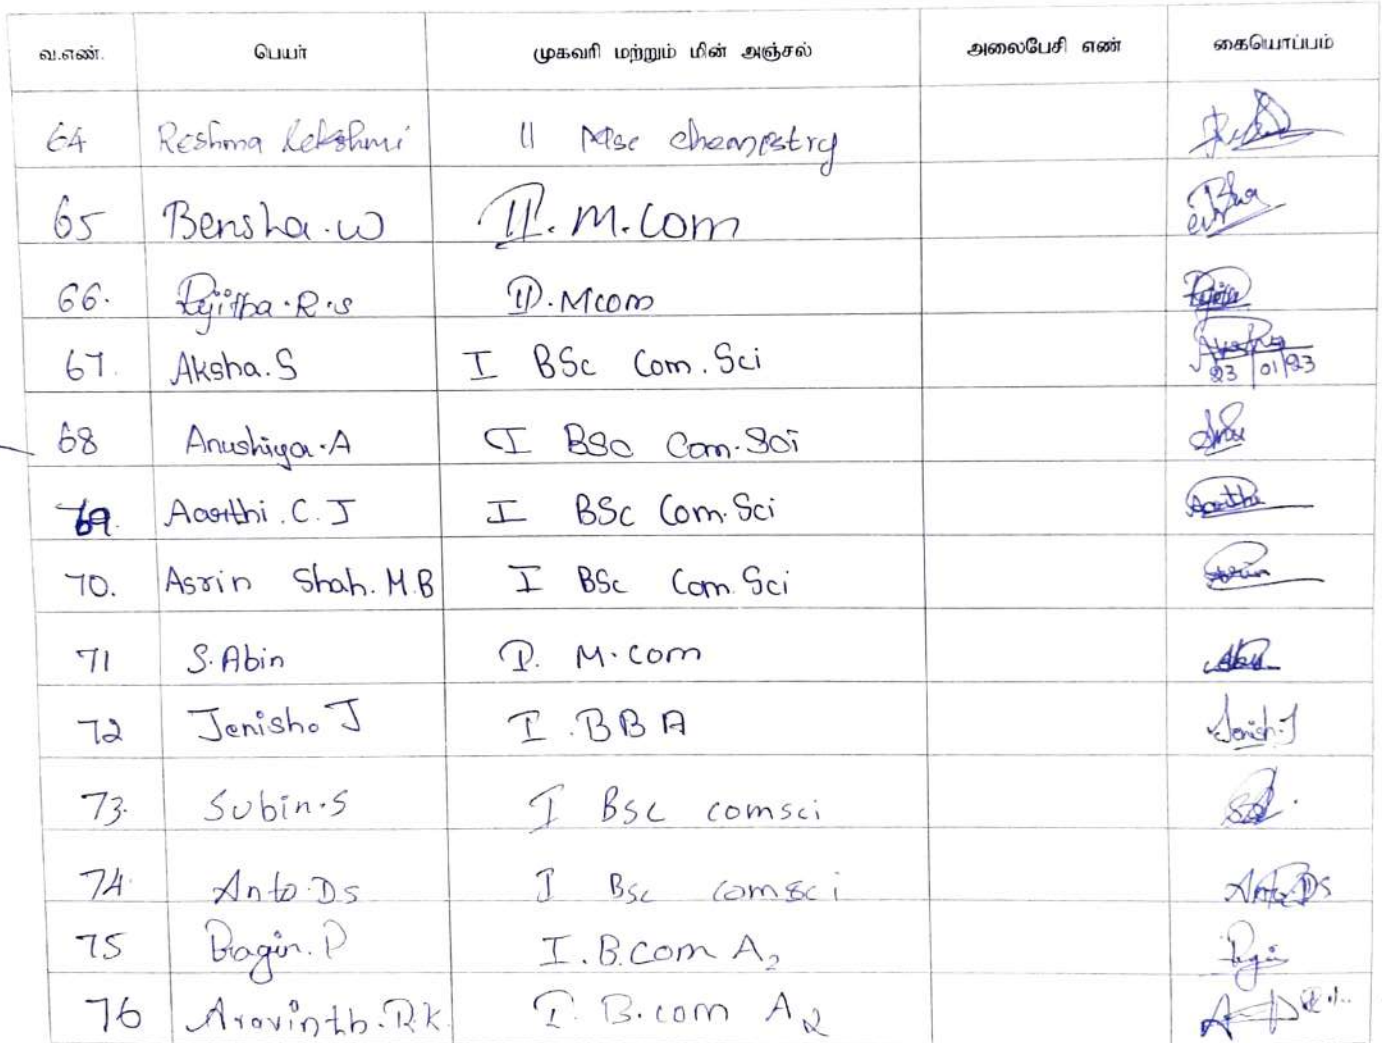 வ.எண். பெயர் முகவரி மற்றும் மின் அஞ்சல் அலைபேசி எண் கையொப்பம்
64 Reshma Lekshmi II Msc chemistry
65 Bensha.W II. M.Com
66. Rjitha.R.S II. Mcom
67. Aksha.S I BSc Com.Sci Aksha 23/01/23
68 Anushiya.A I BSc Com.Sci Anu
69. Aarthi.C.J I BSc Com.Sci Aarthi
70. Asrin Shah.M.B I BSc Com.Sci Asrin
71 S.Abin I. M.com Abin
72 Jenisho J I.BBA Jenish.J
73. Subin.S I BSc comsci
74. Anto.Ds I Bsc comsci Anto.Ds
75 Bragin.P I.B.com A2
76 Aravinth.R.K. I. B.com A2